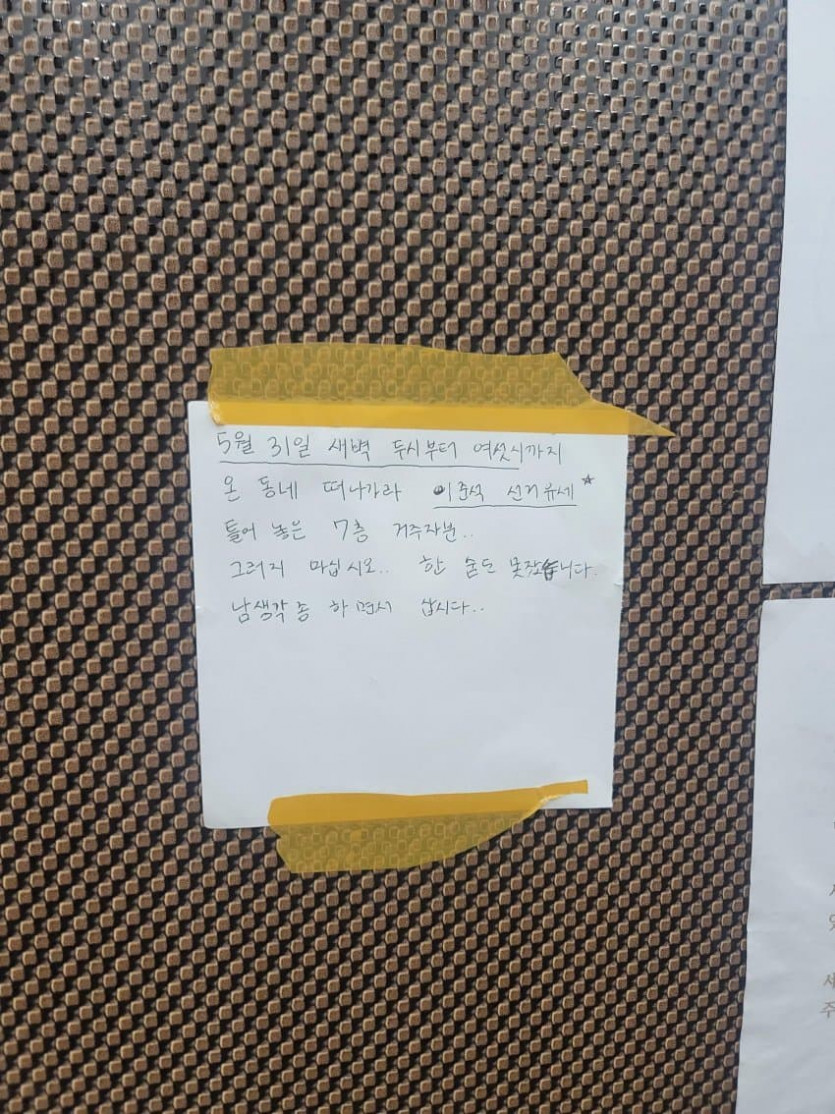 5월 31일 새벽 두시부터 여섯시까지
온 동네 떠나가라 이준석 선거유세☆
틀어 놓은 7층 거주자분..
그러지 마십시오.. 한 숨도 못잤습니다.
남생각 좀 하면서 삽시다..